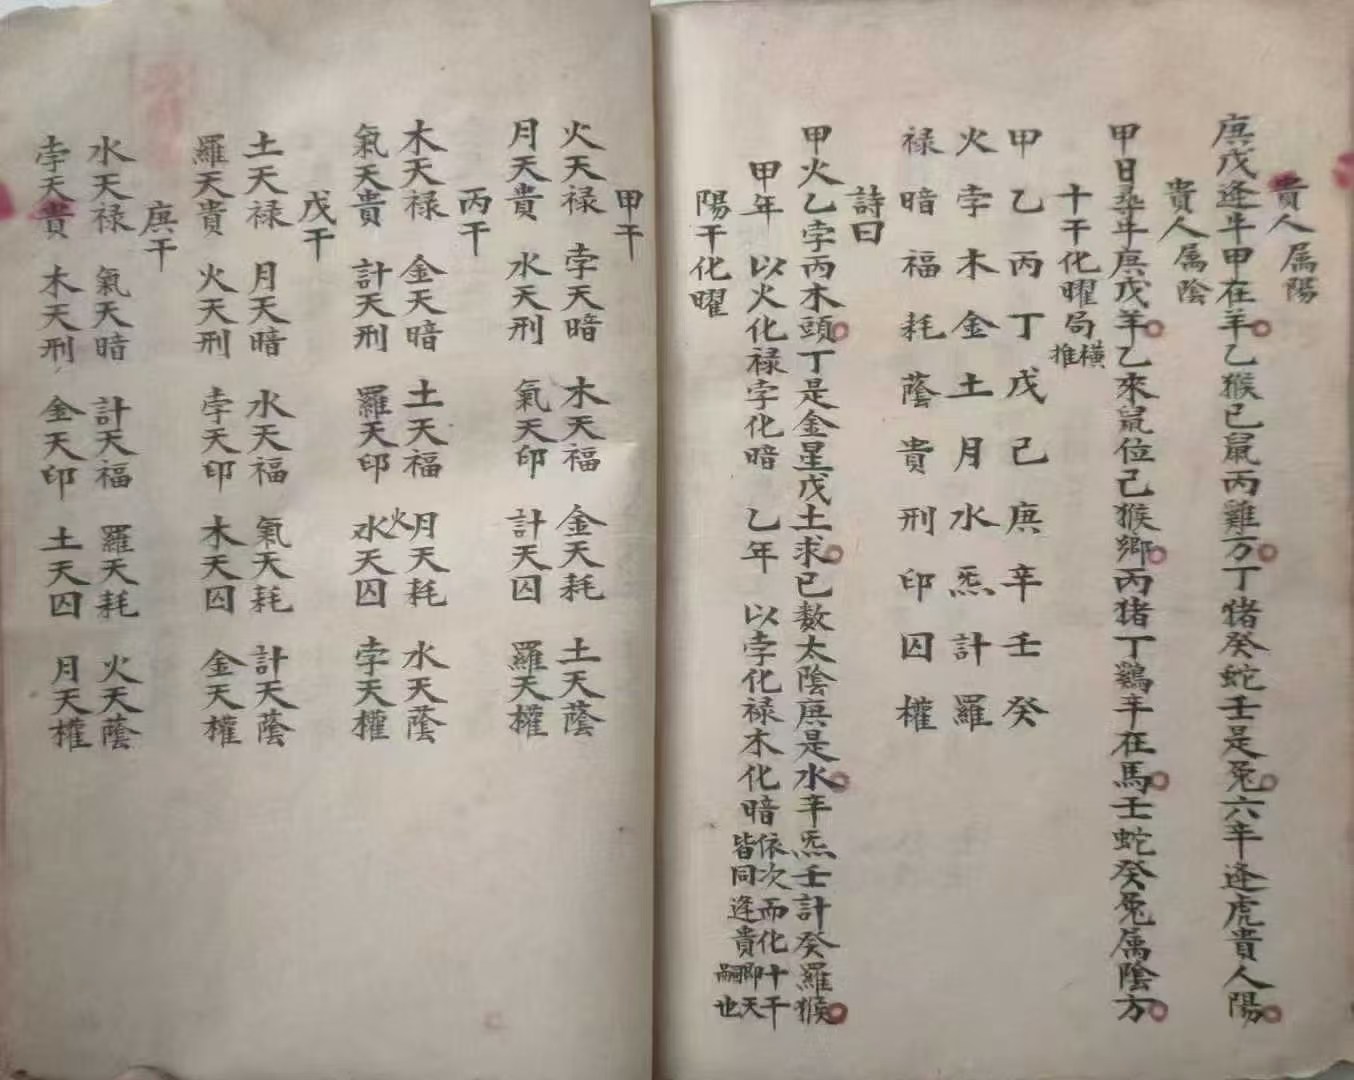 貴人属陽
庚戊逢牛甲在羊乙猴己鼠丙雞方丁猪癸蛇壬是兎六辛逢虎貴人陽
貴人属陰
甲日丑牛庚戊羊乙來鼠位己猴鄉丙猪丁鷄辛在馬壬蛇癸兎属陰方
十干化曜局橫推
甲乙丙丁戊己庚辛壬癸
火孛木金土月水炁計羅
禄暗福耗蔭貴刑印囚權
詩曰
甲火乙孛丙木頭丁是金星戊土求已数太陰庚是水辛炁壬計癸羅猴
甲年 以火化禄孛化暗 乙年 以孛化禄木化暗依次而化十干皆同逢貴即天嗣也
陽干化曜
甲干
火天禄 孛天暗 木天福 金天耗 土天蔭
月天貴 水天刑 氣天印 計天囚 羅天權
丙干
木天禄 金天暗 土天福 月天耗 水天蔭
氣天貴 計天刑 羅天印 火水天囚 孛天權
戊干
土天禄 月天暗 水天福 氣天耗 計天蔭
羅天貴 火天刑 孛天印 木天囚 金天權
庚干
水天禄 氣天暗 計天福 羅天耗 火天蔭
孛天貴 木天刑 金天印 土天囚 月天權